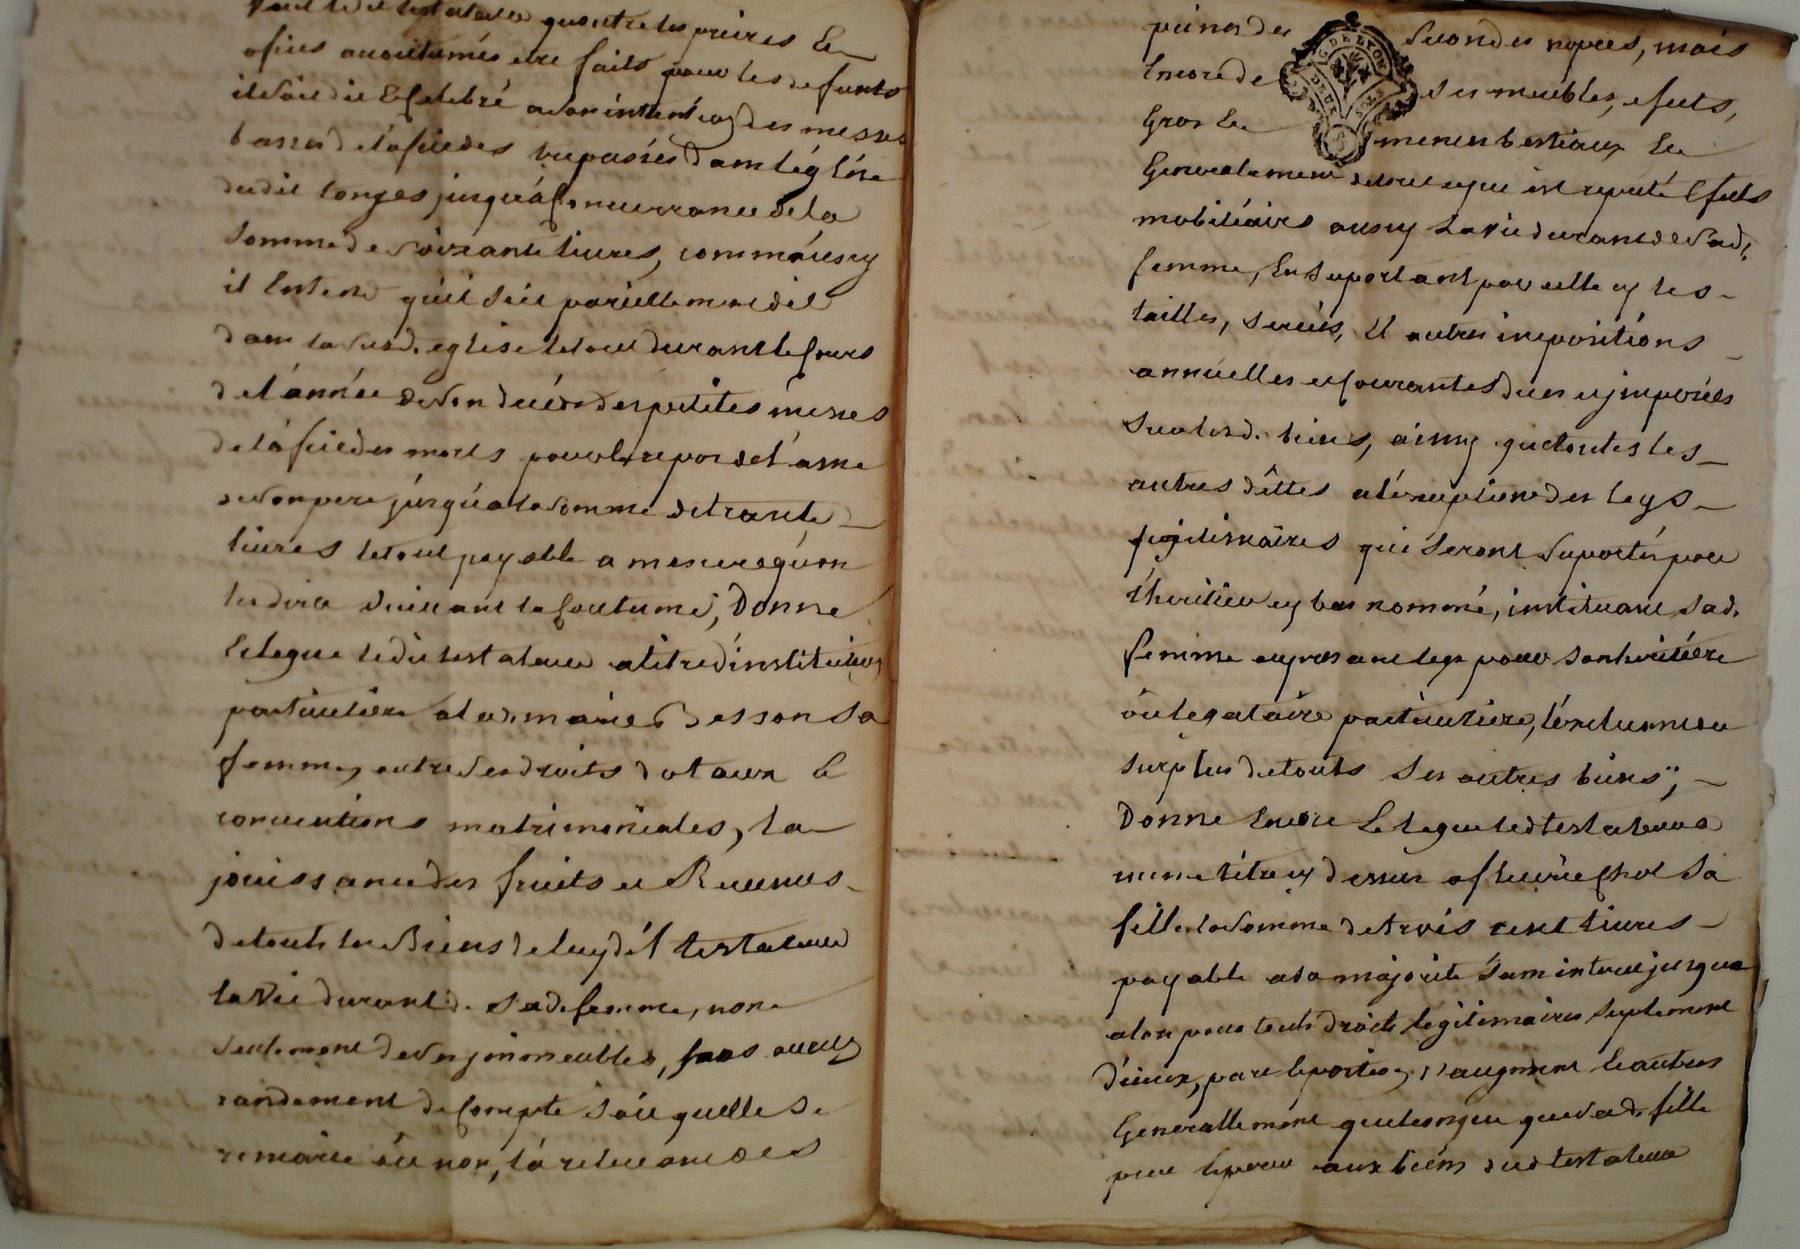 ledit testateur qu'outre les prieres Et
ofices acoutumés etre faits pour les defunts
il soit dit Et Celebré a son intention des messes
basses de l'ofice des trepassés dans l'église
dudit longes jusqu'á Concurrance de la
Somme de soixante livres, comm'áussy
il Entend qu'il soit pareillement dit
dans la susd. eglise le tout durant le Cours
de l'année de son décéds des petites messes
de l'áfice des morts pour le repos de l'ame
de son pere júsqu'a la somme de trante
livres le tout payable a mesure qu'on
les dira suivant la Coutume, Donne
Et legue ledit testateur a titre d'institution
particuliere a lad. marie Besson Sa
femme, outre ses droits dotaux Et
conventions matrimoniales, la
jouissance des fruits et Revenus
de touts les Biens de luy dit testateur
la Vie durant de Sade femme, non
seulement de ses jmmeubles, sans aucun
randement de Compte soit quelle se
remarie óu non, lá relevant des
peines des secondes nopces, mais
Encore de ses meubles, efects,
Gros Et menus bestiaux Et
Generalement de tout ce qui est reputé Efects
mobiliáirs aussy la vie durant de sad.
femme, En suportant par elle cy les
tailles, servis, Et autres impositions
annuelles et Courantes dues et jmposées
sur lesd. biens, ainsy que toutes les
autres dêttes a l'exception des legs
legitimaires qui seront suportés par
l'heritier cy bas nommé, instituant sad.
femme au presant legs pour son heritiére
óu legatáire particuliere, l'excluant du
surplus de touts ses autres biens;
Donne Encore Et legue led testateur a
meme titre cy dessus a fleurie Chol Sa
fille la somme de trois cent livres
payable a sa majorité sans interet jusqu'a
alors pour touts droits legitimaires suplement
d'iceux, part Et portion d'augment Et autres
Generallement quelconque que sad. fille
peut Esperer aux biens dud testateur